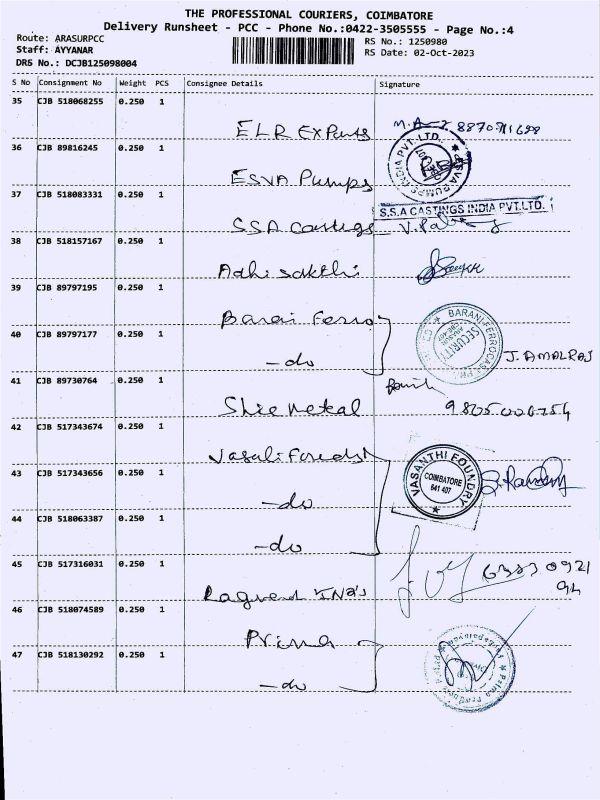 THE PROFESSIONAL COURIERS, COIMBATORE
Delivery Runsheet - PCC - Phone No.:0422-3505555 - Page No.:4
Route: ARASURPCC
RS No.: 1250980
Staff: AYYANAR
RS Date: 02-Oct-2023
DRS No.: DCJB125098004
S No Consignment No Weight PCS Consignee Details Signature
35 CJB 518068255 0.250 1
ELR Exports
36 CJB 89816245 0.250 1
ESVA Pumps
ESVA PUMPS INDIA PVT.LTD.
37 CJB 518083331 0.250 1
S.S.A CASTINGS INDIA PVT.LTD.
SSA Castings
38 CJB 518157167 0.250 1
Adhi sakthi
39 CJB 89797195 0.250 1
Barani Ferro
BARANI FERROCAST
SECURITY
40 CJB 89797177 0.250 1
J. AMALRAJ
-do
41 CJB 89730764 0.250 1
Shree Metal
42 CJB 517343674 0.250 1
VASANTHI FOUNDRY
COIMBATORE
641 407
43 CJB 517343656 0.250 1
-do
44 CJB 518063387 0.250 1
-do
45 CJB 517316031 0.250 1
46 CJB 518074589 0.250 1
Prima
47 CJB 518130292 0.250 1
-do